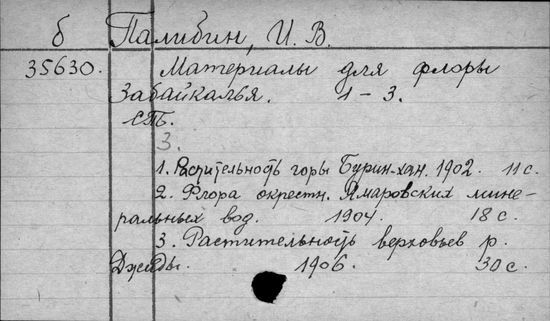 б Палибин, И. В.
35630. Материалы для флоры
Забайкалья. 1-3.
СПб.
3.
1. Растительность горы Бурин-хан. 1902. 11 с.
2. Флора окрестн. Ямаровских мине-
ральных вод. 1904. 18 с.
3. Растительность верховьев р.
Джиды. 1906. 30 с.